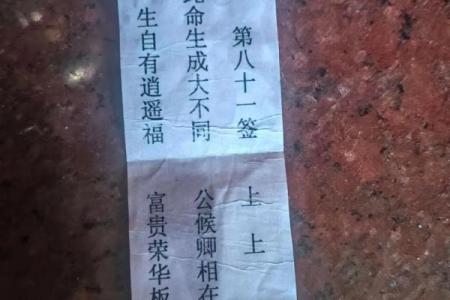 第八十一签 上上
此命生成大不同 公候卿相在
生自有逍遥福 富贵荣华